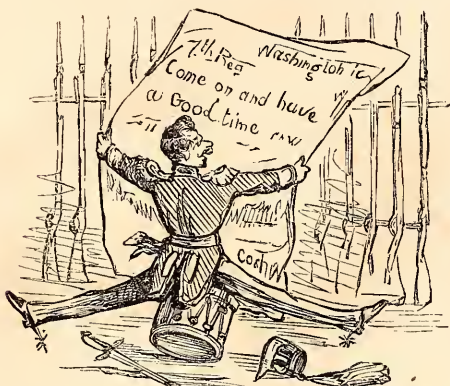 7th Reg Washington
Come on and have
a Good time